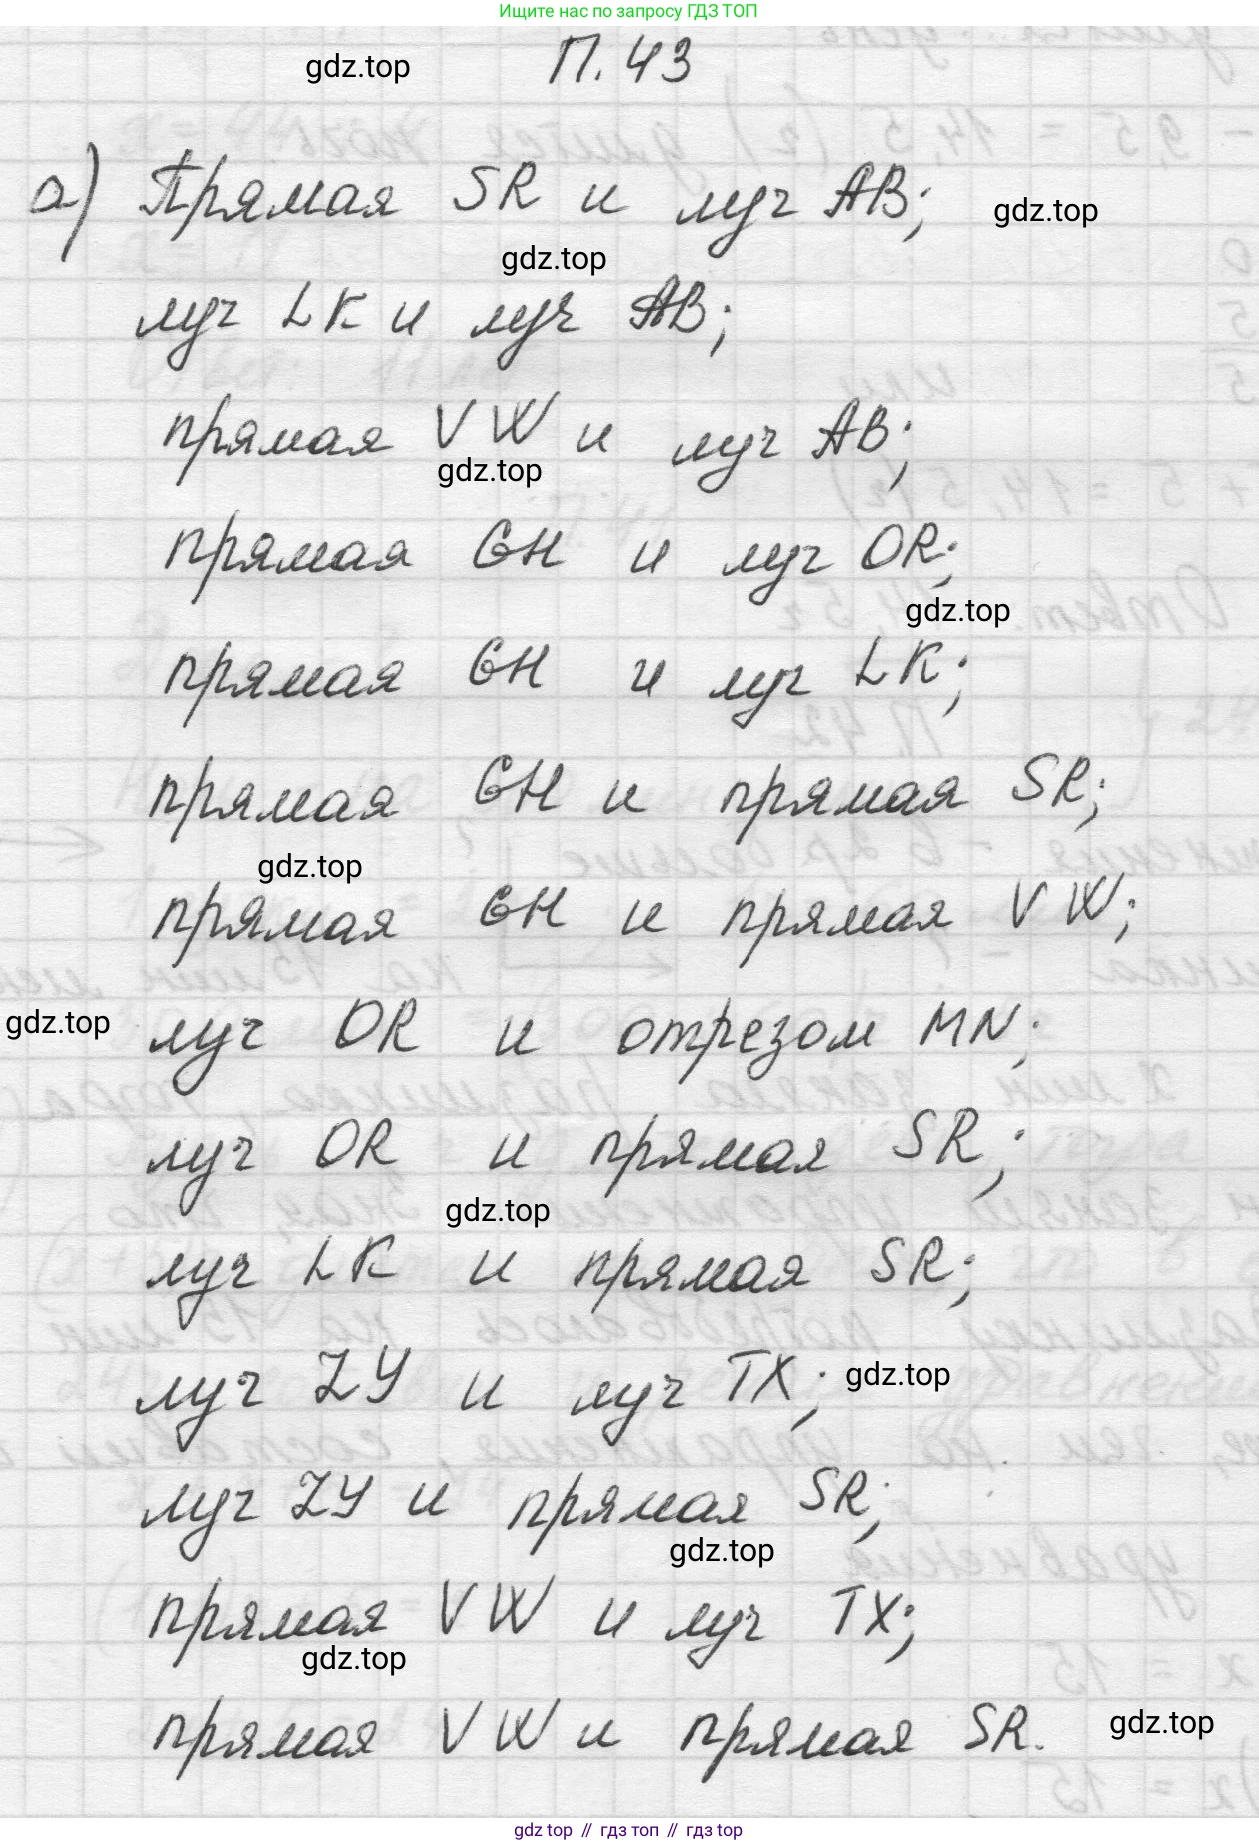 Ищите нас по запросу ГДЗ ТОП
gdz.top
П.43
а) Прямая SR и луч AB;
gdz.top
gdz.top
луч LK и луч AB;
прямая VW и луч AB;
gdz.top
прямая GH и луч OR;
gdz.top
прямая GH и луч LK;
прямая GH и прямая SR;
gdz.top
прямая GH и прямая VW;
gdz.top
луч OR и отрезом MN;
луч OR и прямая SR;
gdz.top
луч LK и прямая SR;
луч ZY и луч TX;
gdz.top
луч ZY и прямая SR;
gdz.top
прямая VW и луч TX;
gdz.top
прямая VW и прямая SR.
gdz.top
gdz top // гдз топ // gdz.top